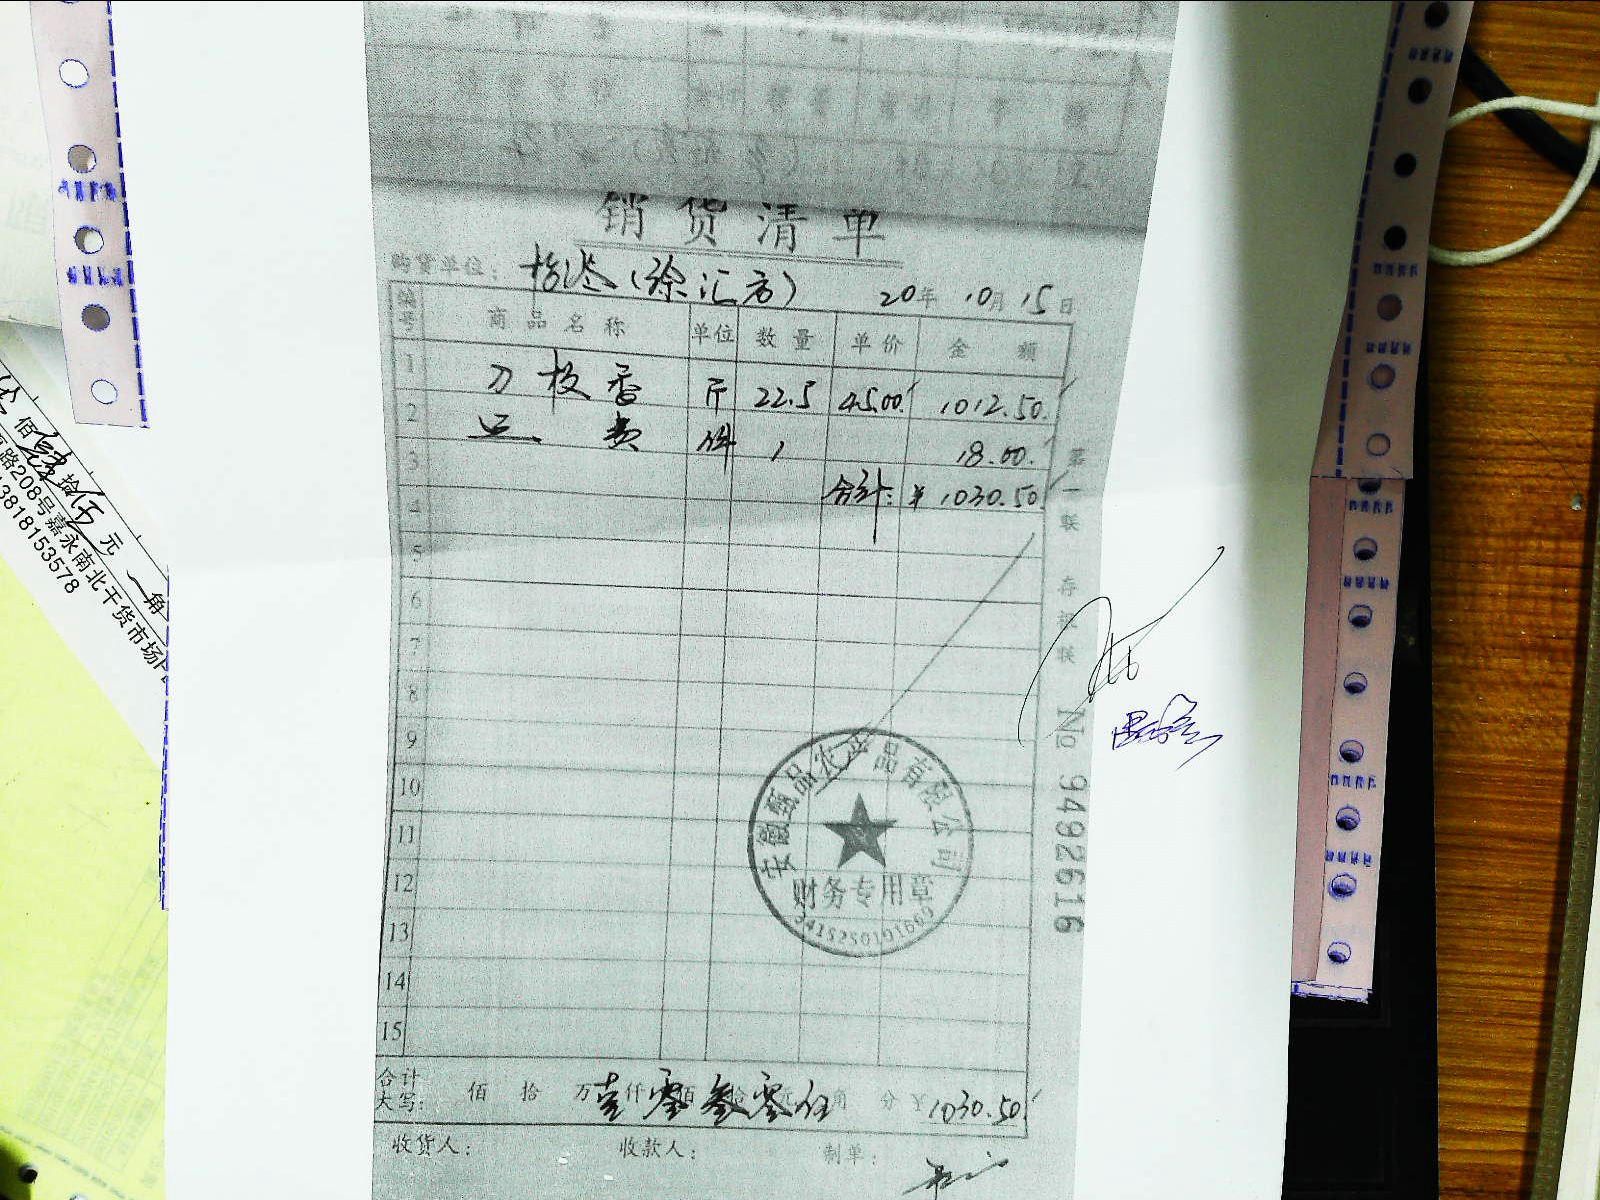 销货清单
购货单位：拾沴（徐汇店） 20年10月15日
编号 商品名称 单位 数量 单价 金额
1 刀板香 斤 22.5 45.00 1012.50
2 运费 件 1 18.00
3 合计：¥1030.50
4
5
6
7
8
9
10
11
12
13
14
15
第一联 存根联 No 9492616
安徽甄品农产品有限公司
财务专用章
合计大写： 佰 拾 万壹仟零佰叁拾零元伍角 分 ¥1030.50
收货人： 收款人： 制单：
佰肆拾伍元 角
路208号嘉永南北干货市场
13818153578